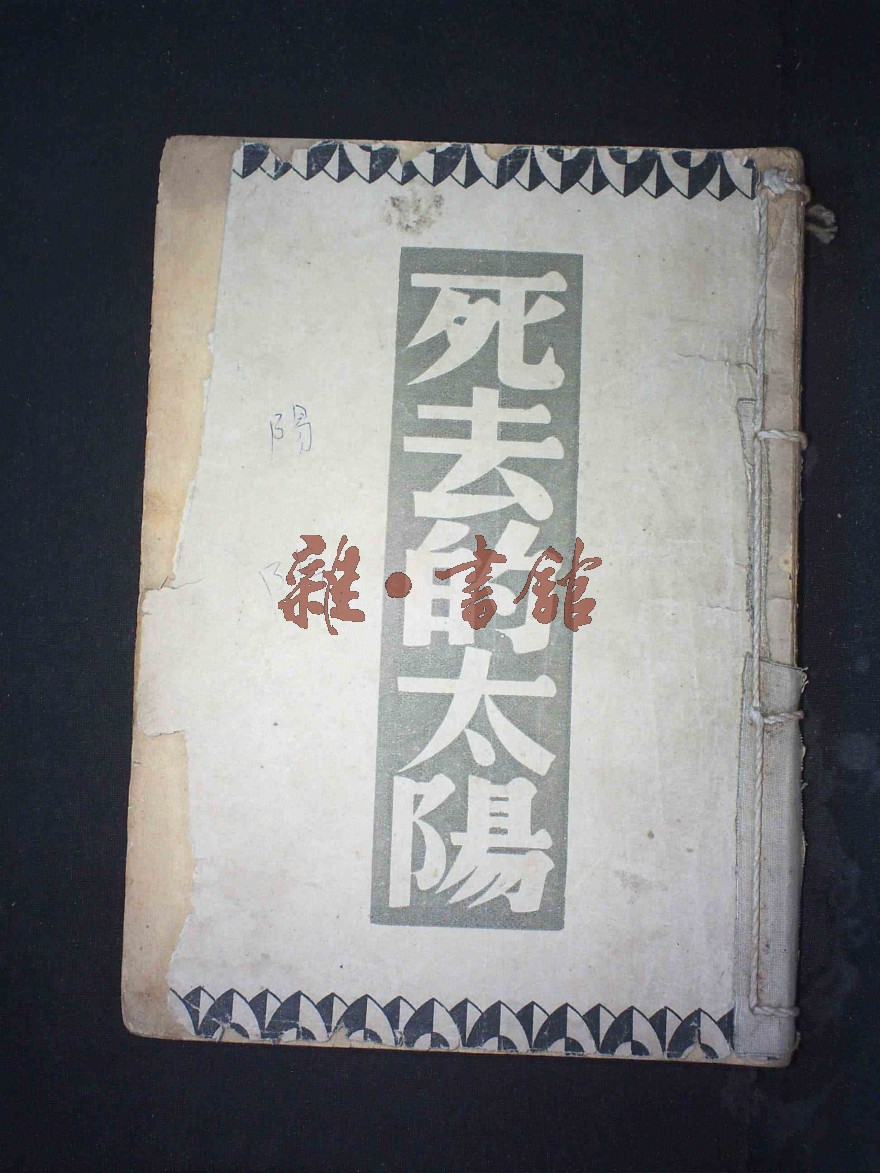 死去的太陽
陽
阝
雜·書館